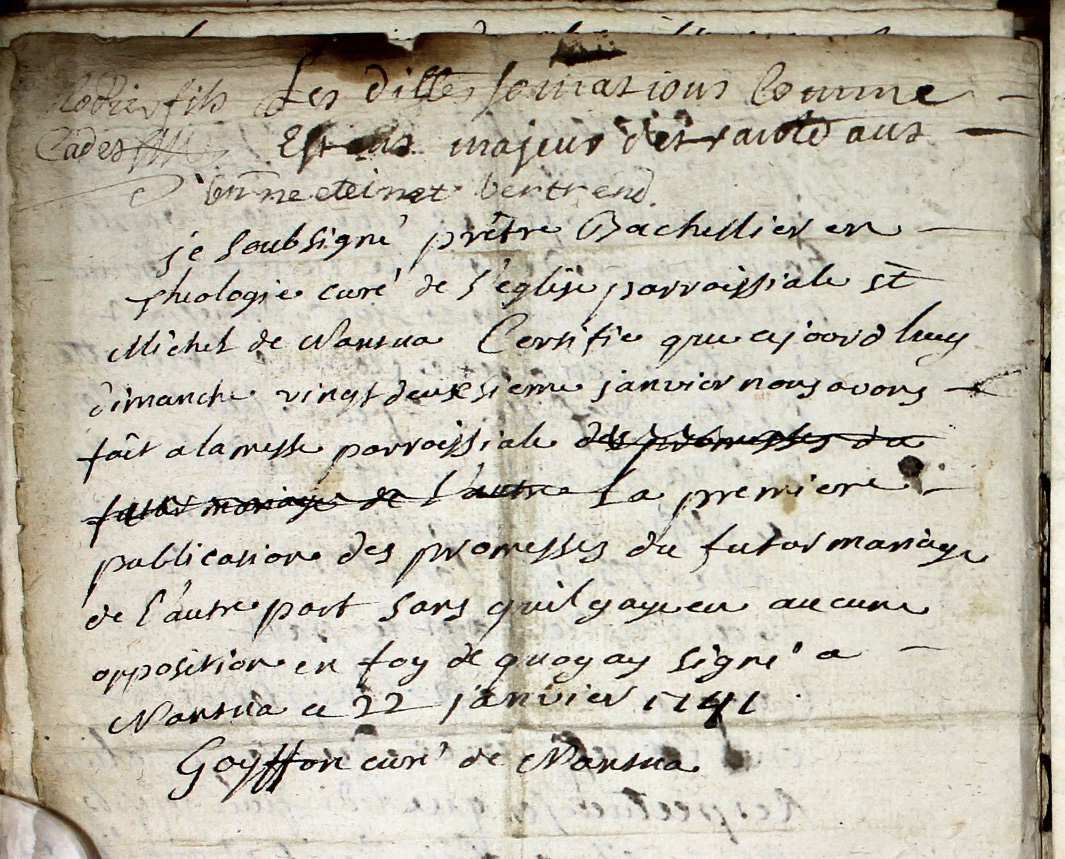 fils Les dittes somations Comme
Cadet majeur de trante ans
bertrend
je soubsigné prêtre Bachellier en
theologie curé de l'église parroissiale St
Michel de Nantua Certifie que ajoord huy
dimanche vingt deuxsieme janvier nous avons
fait a la messe parroissiale des promesses du
futur mariage de l'autre La premiere
publication des promesses du futur mariage
de l'autre part sans quil y aye eu aucune
opposition en foy de quoy ay signé a
Nantua ce 22 janvier 1741
Goyffon curé de Nantua